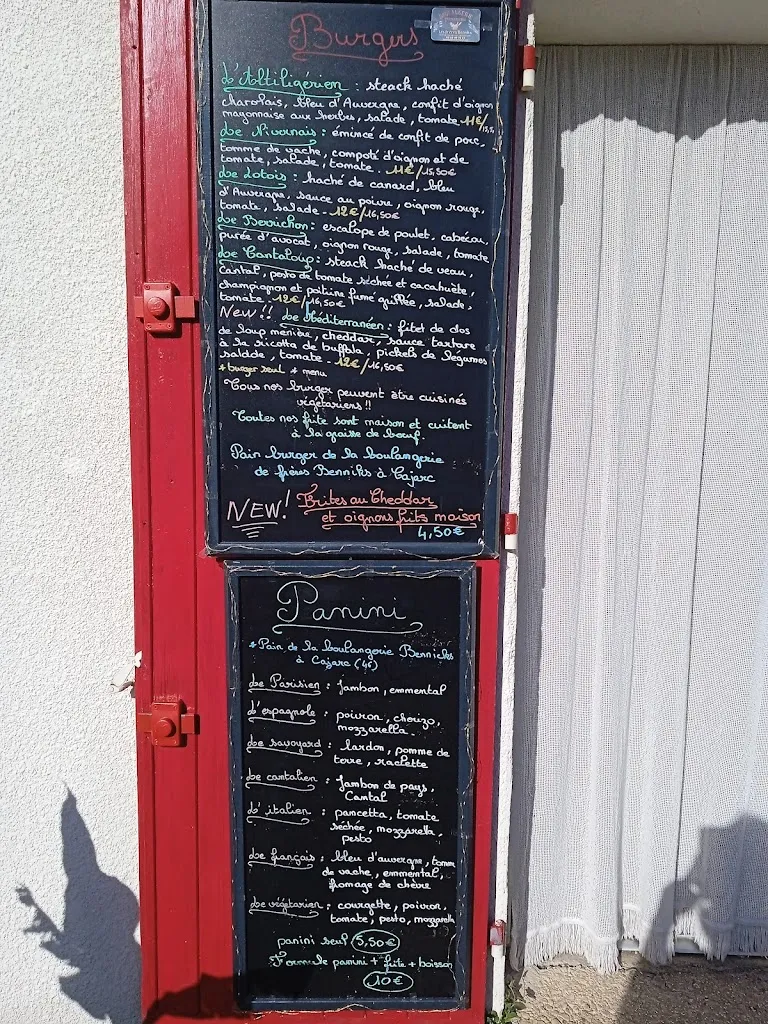 Burgers
L'Altiligérien : steack haché
charolais, bleu d'Auvergne, confit d'oignon
mayonnaise aux herbes, salade, tomate 11€/
Le Nivernais : émincé de confit de porc,
tomme de vache, compoté d'oignon et de
tomate, salade, tomate. 11€/15,50€
Le Lotois : haché de canard, bleu
d'Auvergne, sauce au poivre, oignon rouge,
tomate, salade - 12€/16,50€
Le Berrichon : escalope de poulet, cabécou,
purée d'avocat, oignon rouge, salade, tomate
Le Cantaloup : steack haché de veau,
Cantal, pesto de tomate séchée et cacahuète,
champignon et poitrine fumé grillée, salade,
tomate. 12€/16,50€
New !! Le Méditerranéen : filet de dos
de loup menière, cheddar, sauce tartare
à la ricotta de buffala, pickels de légumes
salade, tomate - 12€/16,50€
* burger seul * menu
Tous nos burger peuvent être cuisinés
végétariens !!
Toutes nos frite sont maison et cuitent
à la graisse de bœuf.
Pain burger de la boulangerie
de frères Benniks à Cajarc
NEW! Frites au Cheddar
et oignons frits maison
4,50€
Panini
* Pain de la boulangerie Bennicks
à Cajarc (46)
Le Parisien : Jambon, emmental
L'espagnole : poivron, chorizo,
mozzarella
Le savoyard : lardon, pomme de
terre, raclette
Le cantalien : Jambon de pays,
Cantal
L'italien : pancetta, tomate
séchée, mozzarella,
pesto
Le français : bleu d'auvergne, tomme
de vache, emmental,
fromage de chèvre
Le végétarien : courgette, poivron,
tomate, pesto, mozzarella
panini seul 5,50€
Formule panini + frite + boisson
10€